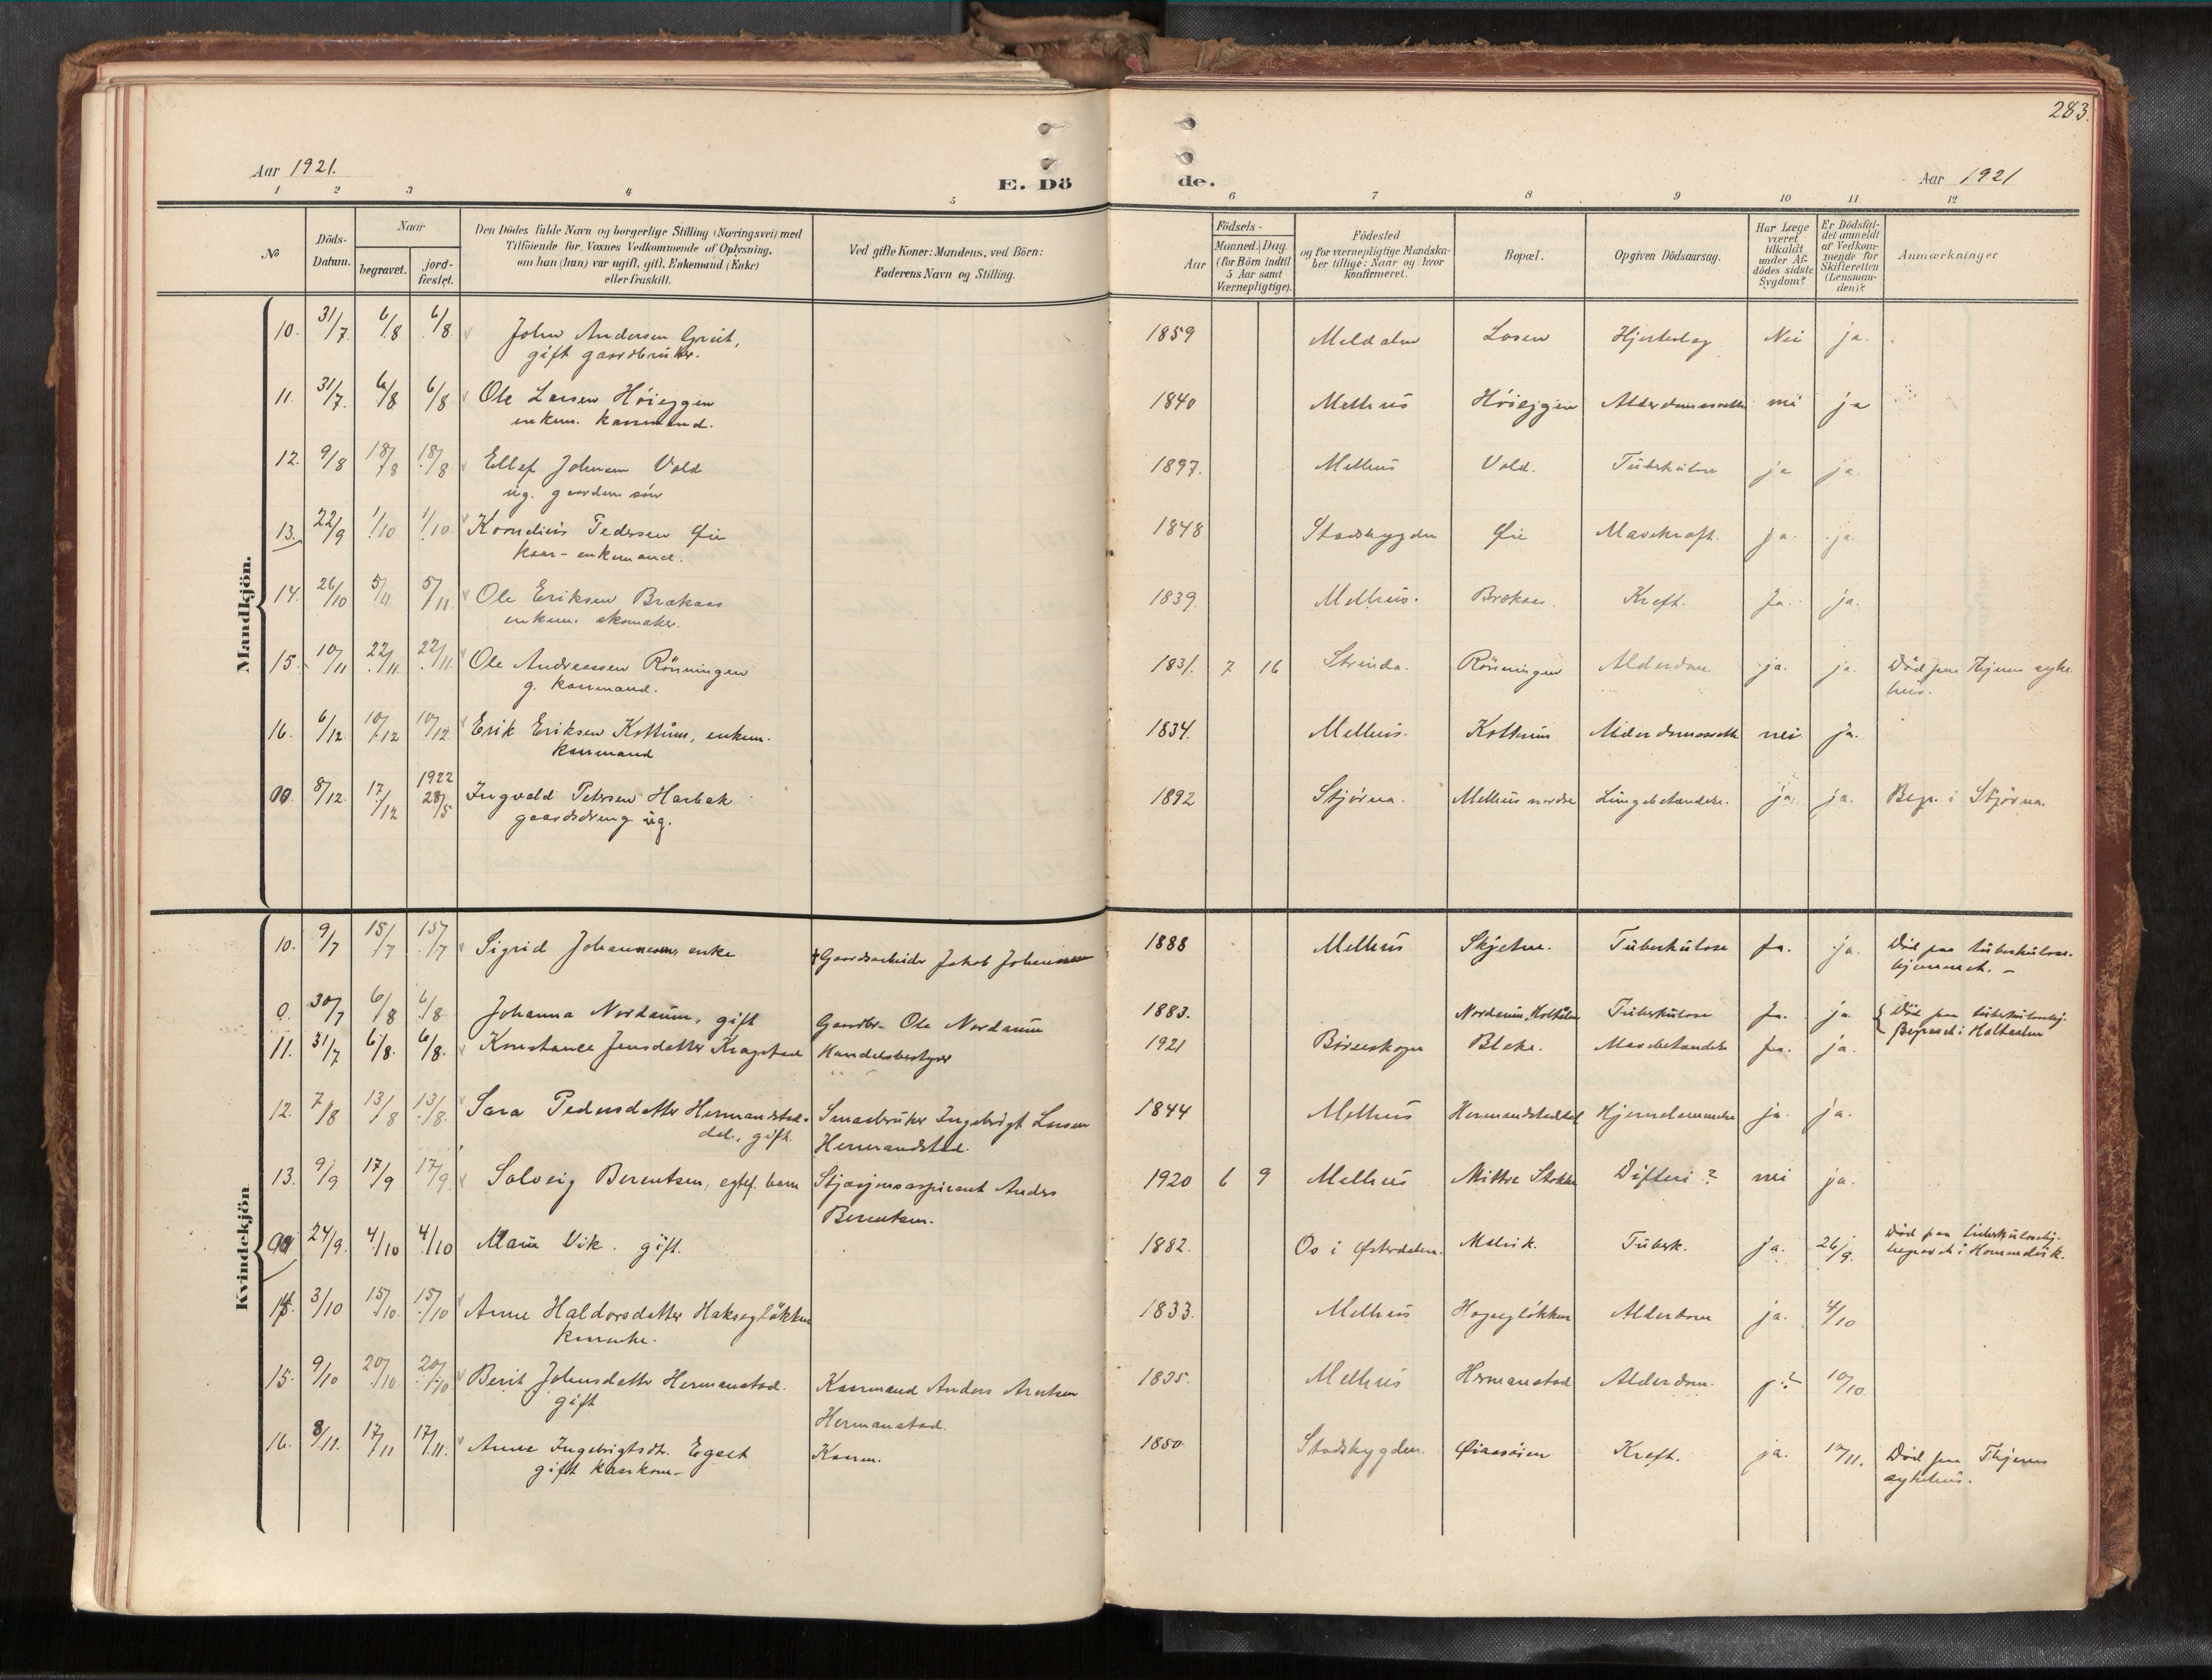 283.
Aar 1921.
E. Dö
de.
Aar 1921
1 2 3 4 5 6 7 8 9 10 11 12
No
Döds-Datum.
Naar
begravet.
jord-fæstet.
Den Dödes fulde Navn og borgerlige Stilling (Næringsvei) med
Tilföiende for Voxnes Vedkommende af Oplysning,
om han (hun) var ugift, gift, Enkemand (Enke)
eller fraskilt.
Ved gifte Koner: Mandens, ved Börn:
Faderens Navn og Stilling.
Födsels-
Aar
Maaned. Dag.
(for Börn indtil
5 Aar samt
Værnepligtige).
Födested
og for værnepligtige Mandska-
ber tillige: Naar og hvor
konfirmeret.
Bopæl.
Opgiven Dödsaarsag.
Har Læge
været
tilkaldt
under Af-
dödes sidste
Sygdom?
Er Dödsfal-
det anmeldt
af Vedkom-
mende for
Skifteretten
(Lensman-
den)?
Anmærkninger
Mandkjön.
10. 31/7 6/8 6/8 John Andersen 1859 Meldalen Losen Hjerteslag Nei ja.
gift gaardbruker.
11. 31/7. 6/8 6/8 Ole Larsen Höieggen 1840 Melhus Höieggen nei ja
enkem. kaarmand.
12. 9/8 18/8 18/8 Ellef Johnsen Vold 1897. Melhus Vold. Tuberkulose ja ja.
ug. gaardm. sön
13. 22/9 1/10 1/10 Kornelius Pedersen Øie 1848 Stadsbygden Øie Mavekræft. ja. ja.
kaar-enkemand.
14. 26/10 5/11. 5/11 Ole Eriksen Brækaas 1839. Melhus. Brækaas. Kreft. Ja. ja.
enkem. skomaker.
15. 10/11 22/11. 22/11. Ole Andreassen Rönningen 1831. 7 16 Strinda. Rönningen Alderdom ja. ja. Död paa Thjems syke
g. kaarmand. hus.
16. 6/12 10/12 10/12 Erik Eriksen Kottum, enkem. 1834. Melhus. Kottum nei ja.
kaarmand
00. 8/12 17/12 1922 28/5 Ingvald Petersen Harbak 1892 Stjörna. Melhus nordre Lungebetændelse. ja. ja. Begr. i Stjörna.
gaardsdreng. ug.
Kvindekjön
10. 9/7 15/7 15/7 Sigrid Johannesen, enke †Gaardsarbeider Jakob Johannesen 1888 Melhus Skjetne. Tuberkulose Ja. ja. Död paa tuberkulose-
hjemmet. -
0. 30/7 6/8 6/8 Johanna Nordaune, gift Gaardbr. Ole Nordaune 1883. Tuberkulose Ja. ja Död paa tuberkulosehj.
11. 31/7 6/8. 6/8. Konstance Jensdatter Krogstad Handelsbestyrer 1921 Börseskogn Bleke. Mavebetændelse Ja. ja. Begravet i Holtaalen
12. 7/8 13/8 13/8. Sara Pedersdatter Hermandstad- Smaabruker Ingebrigt Larsen 1844 Melhus ja. ja.
dal, gift. Hermandstad.
13. 9/9 17/9 17/9. Solveig Berentsen, egtef. barn Stasjonsaspirant Anders 1920 6 9 Melhus Midtre Stokke Difteri? nei ja.
Berentsen.
24/9. 4/10 4/10 Marie Vik. gift. 1882. Os i Østerdalen. Malvik. Tuberk. ja. 26/9. Död paa tuberkulosehj.
begravet i Hommelvik.
14. 3/10 15/10. 15/10 Anne Haldorsdatter 1833. Melhus Alderdom ja. 4/10
15. 9/10 20/10. 20/10 Berit Johnsdatter Hermanstad. Kaarmand Anders Arntsen 1835. Melhus Hermanstad Alderdom. 10/10.
gift Hermanstad.
16. 8/11. 17/11 17/11. Anne Ingebrigtsdt. Kaarm. 1850. Stadsbygden. Kreft. ja. 10/11. Död paa Thjems
gift kaarkone. sykehus.